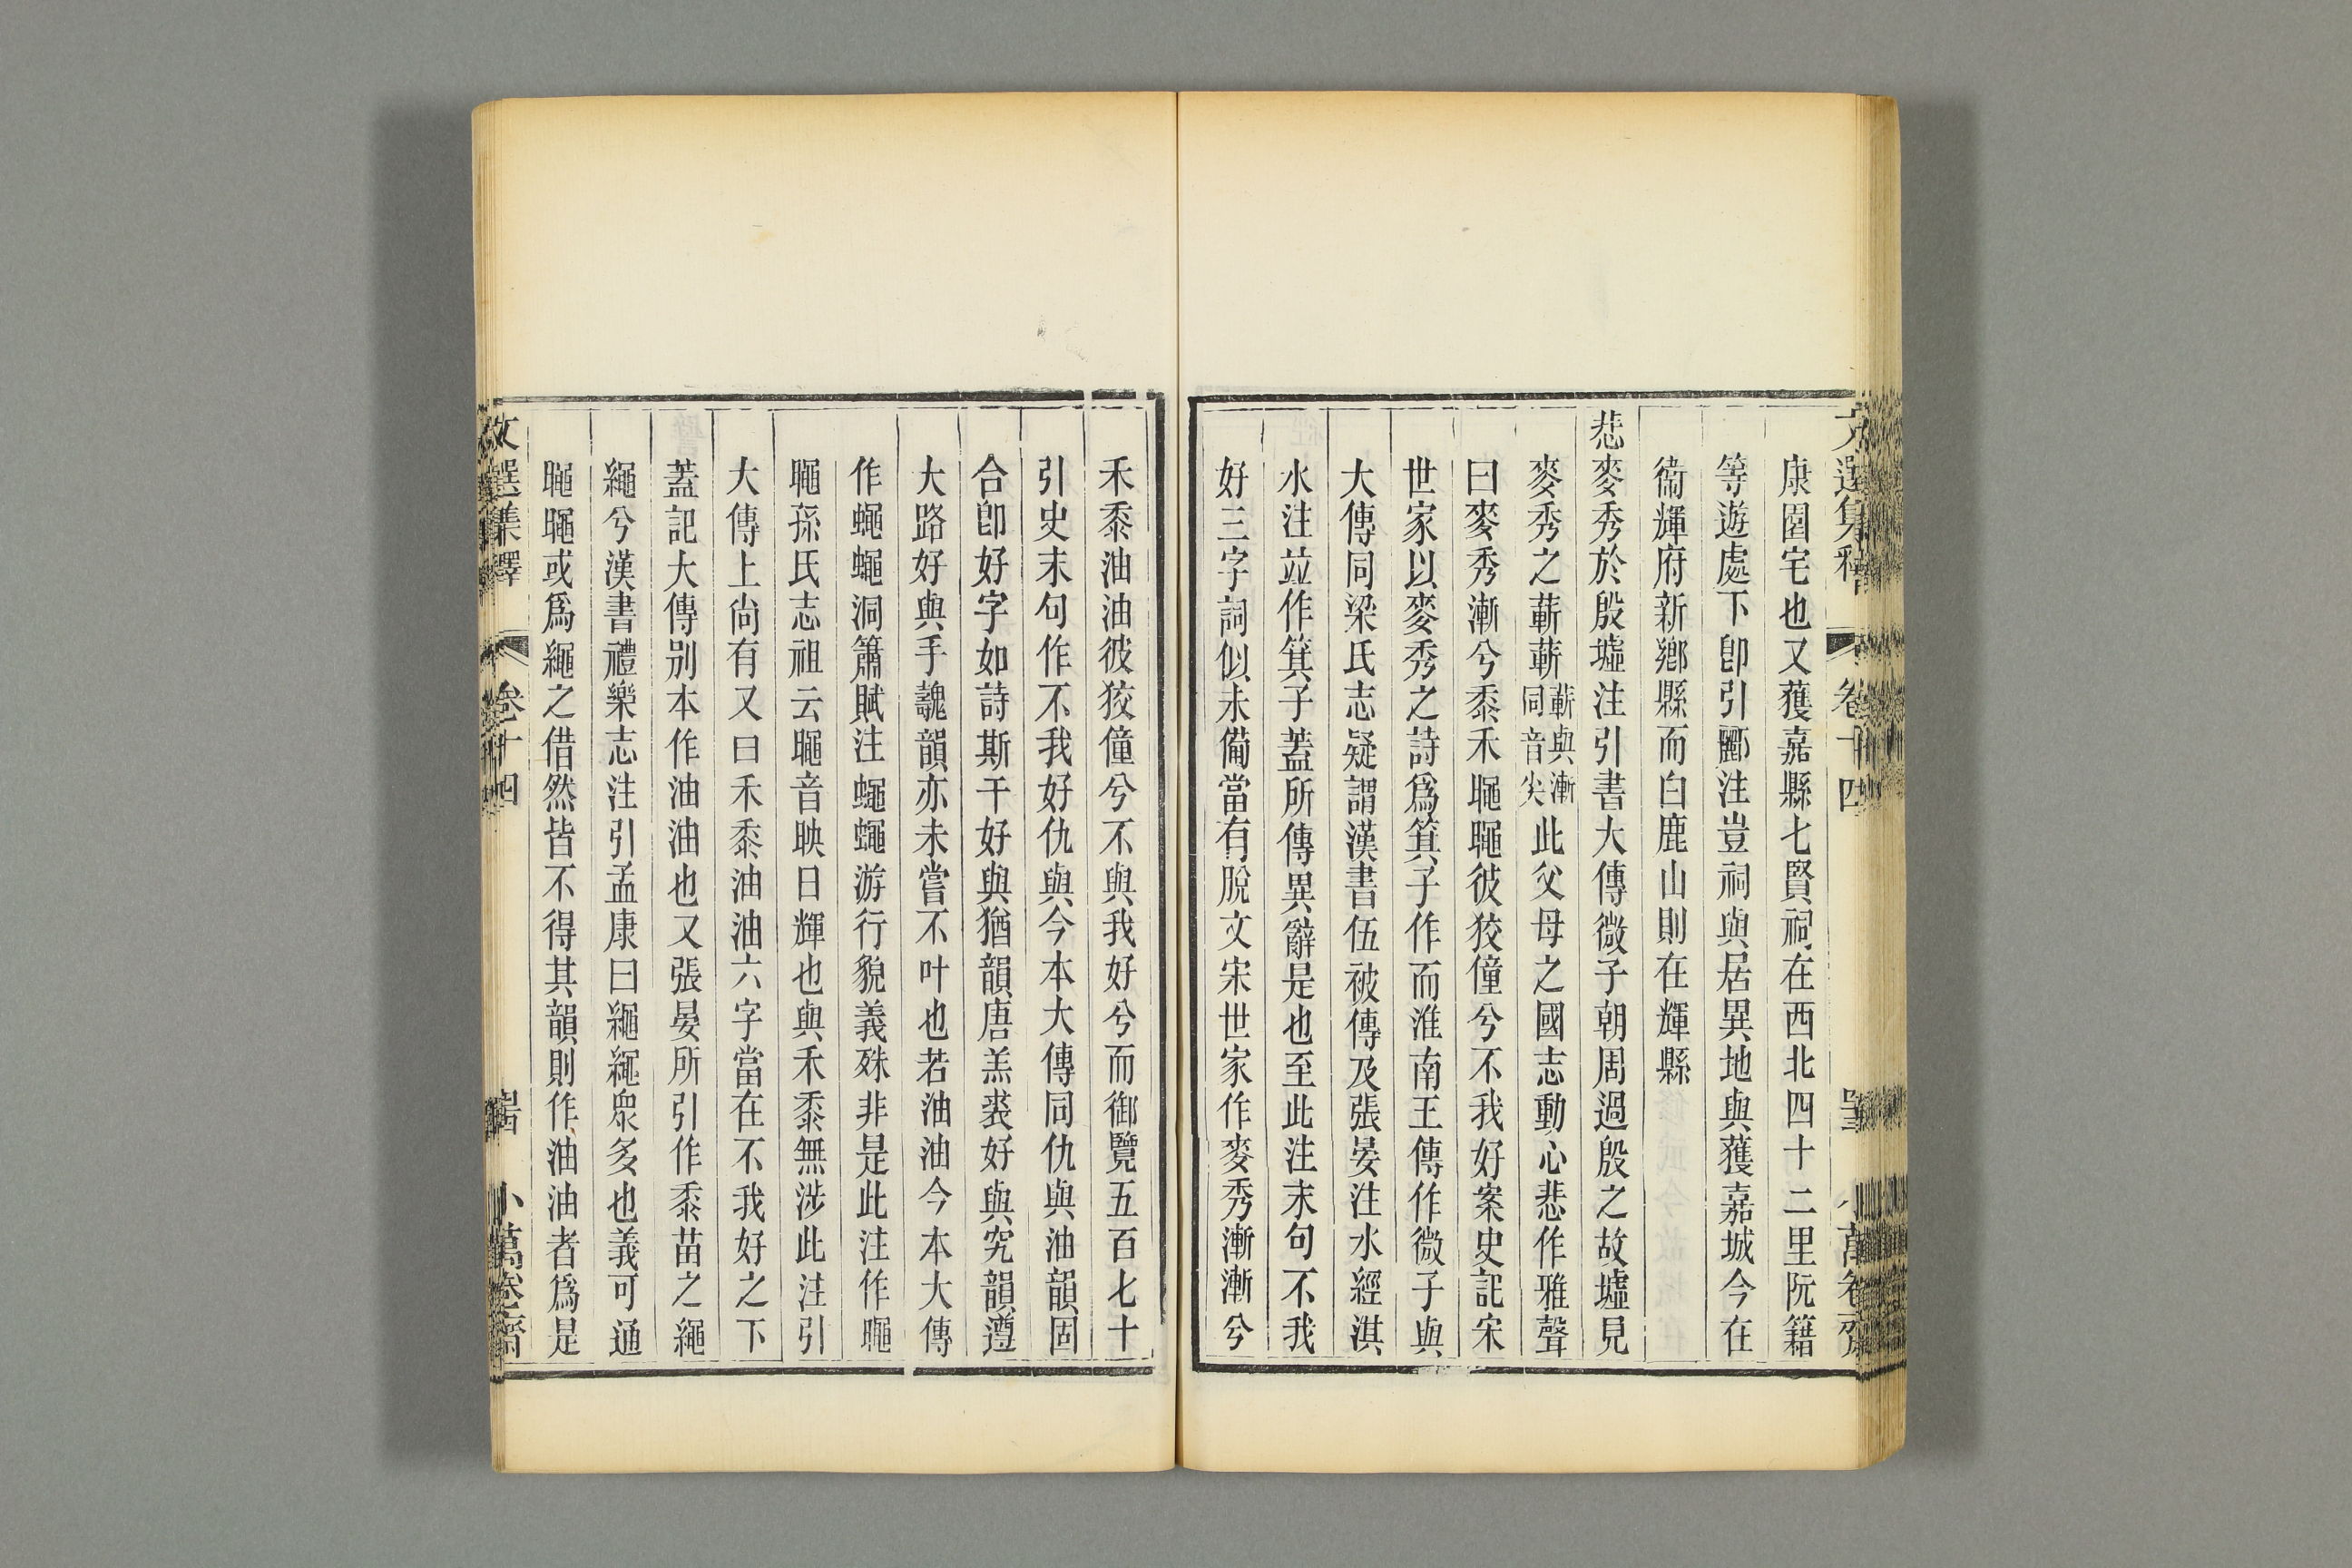 文選集釋 卷十四 小萬卷齋
康園宅也又獲嘉縣七賢祠在西北四十二里阮籍
等遊處下卽引酈注豈祠與居異地與獲嘉城今在
衞輝府新鄉縣而白鹿山則在輝縣
悲麥秀於殷墟注引書大傳微子朝周過殷之故墟見
麥秀之蔪蔪蔪與漸同音尖此父母之國志動心悲作雅聲
曰麥秀漸兮黍禾𣊡𣊡彼狡僮兮不我好案史記宋
世家以麥秀之詩爲箕子作而淮南王傳作微子與
大傳同梁氏志疑謂漢書伍被傳及張晏注水經淇
水注竝作箕子蓋所傳異辭是也至此注末句不我
好三字詞似未備當有脫文宋世家作麥秀漸漸兮
禾黍油油彼狡僮兮不與我好兮而御覽五百七十
引史末句作不我好仇與今本大傳同仇與油韻固
合卽好字如詩斯干好與猶韻唐羔裘好與究韻遵
大路好與手魗韻亦未嘗不叶也若油油今本大傳
作蠅蠅洞簫賦注蠅蠅游行貌義殊非是此注作𣊡
𣊡孫氏志祖云𣊡音映日輝也與禾黍無涉此注引
大傳上尙有又曰禾黍油油六字當在不我好之下
蓋記大傳別本作油油也又張晏所引作黍苗之繩
繩兮漢書禮樂志注引孟康曰繩繩衆多也義可通
𣊡𣊡或爲繩之借然皆不得其韻則作油油者爲是
文選集釋 卷十四 小萬卷齋